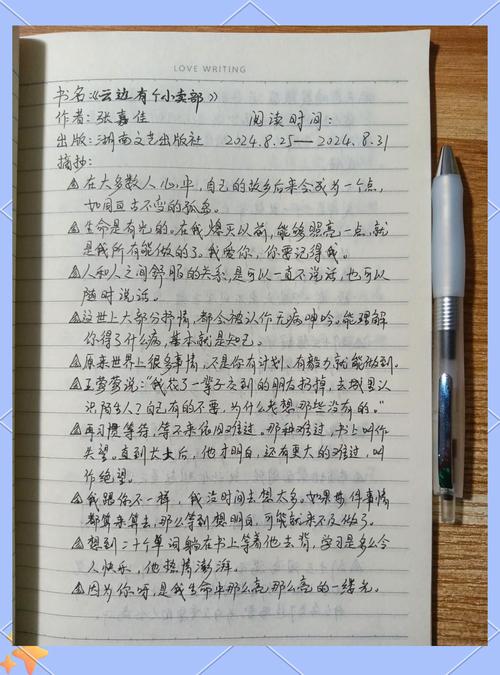 LOVE WRITING
书名:《云边有个小卖部》
作者:张嘉佳 阅读时间:
出版:湖南文艺出版社 2024.8.25—2024.8.31
摘抄:
在大多数人心中,自己的故乡后来会成为一个点,
如同亘古不变的孤岛。
生命是有光的。在我熄灭以前,能够照亮一点,就
是我所有能做的了。我爱你,你要记得我。
人和人之间舒服的关系,是可以一直不说话,也可以
随时说话。
这世上大部分抒情,都会被认作无病呻吟。能理解
你得了什么病,基本就是知己。
原来世界上很多事情,不是你有计划、有毅力就能做到。
王莺莺说:“我花了一辈子交到的朋友扔掉,去城里认
识陌生人?自己有的不要,为什么老想那些没有的。”
再习惯等待,等不来依旧难过。那种难过,书上叫作
失望。直到长大后,他才明白,还有更大的难过,叫
作绝望。
我跟你不一样,我没时间去想太多。如果每件事情
都算来算去,那么等到想明白,可能就来不及做了。
想到二十个单词躺在书上等着他去背,学习是多么令
人快乐,他热情澎湃。
因为你呀,是我生命中那么亮那么亮的一缕光。